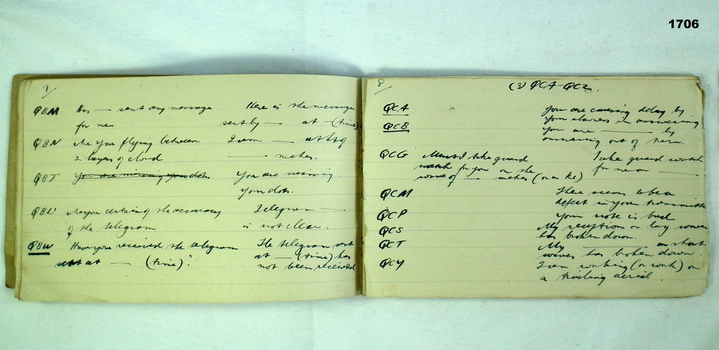 1706
7
QBM Has — sent any message Here is the message
for me sent by — at — (time)
QBN Are you flying between I am —
2 layers of cloud — metres.
QBT You are missing your dots You are missing
your dots.
QBU Are you certain of the accuracy Telegram —
of the telegram is not clear.
QBW Have you received the telegram The telegram sent
sent at — (time)? at — (time) has
not been received
8 (3) QCA-QCZ.
QCA You are causing delay by
your slowness in answering
QCB You are — by
answering out of turn.
QCG Must I take guard Take guard watch
watch for you on the for me on —
wave of — metres (or — kc)
QCM There seems to be a
defect in your transmission
QCP Your note is bad
QCS My reception on long waves
has broken down.
QCT My — on short
waves has broken down.
QCY I am working (or work) on
a trailing aerial.